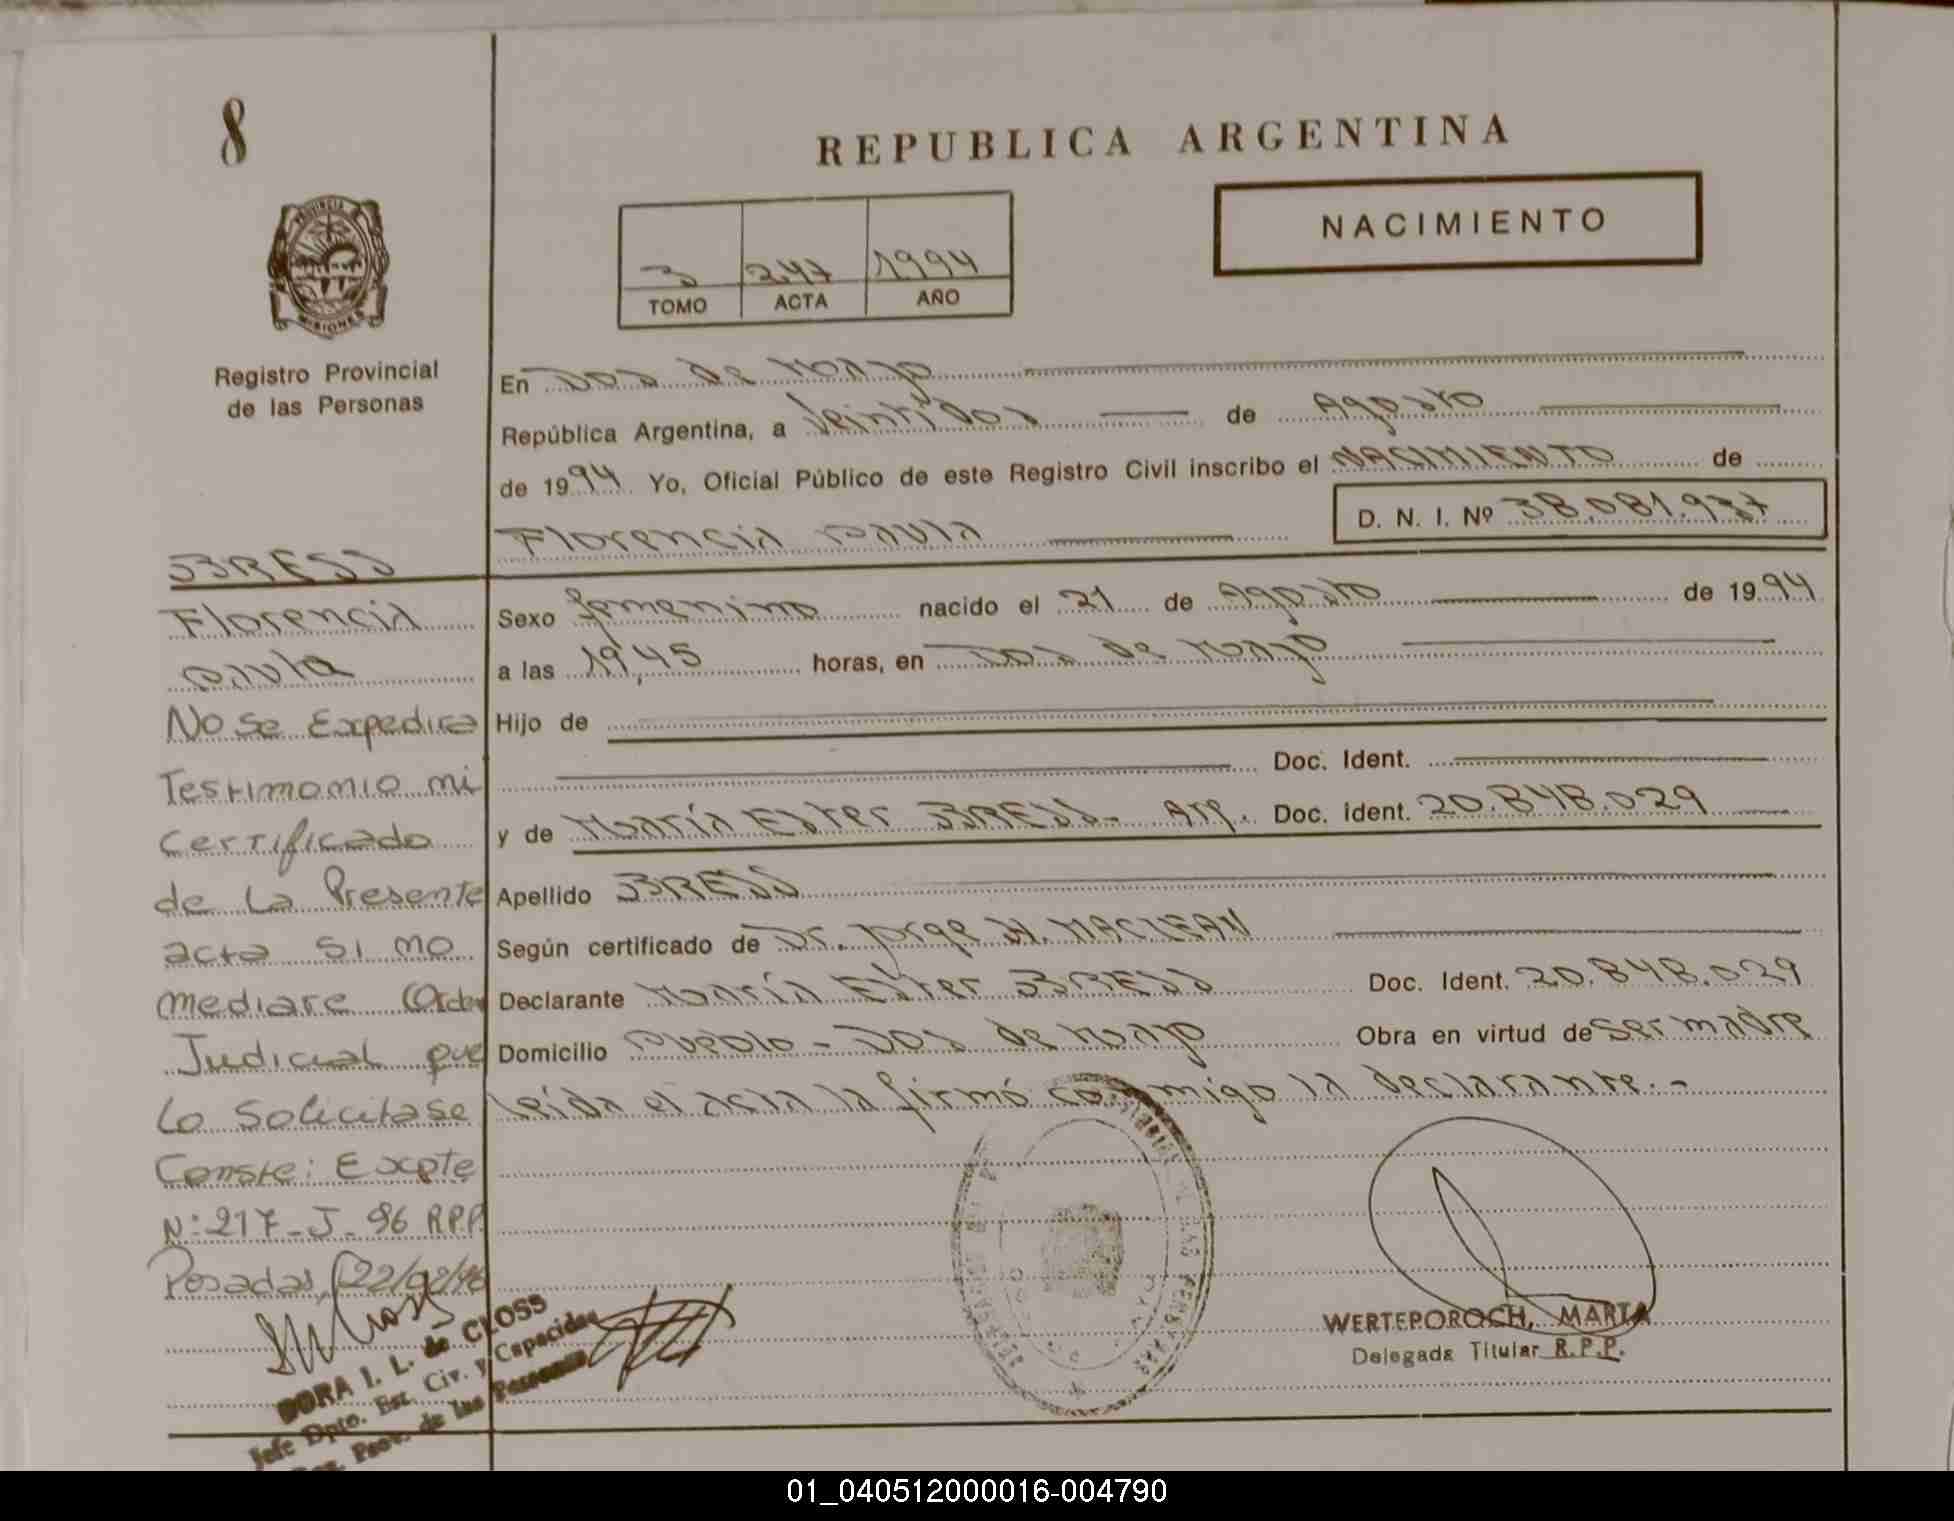 8
REPUBLICA ARGENTINA
NACIMIENTO
3 247 1994
TOMO ACTA AÑO
PROVINCIA
MISIONES
Registro Provincial
de las Personas
En Dos de Mayo
República Argentina, a Veintidos de Agosto
de 1994 Yo, Oficial Público de este Registro Civil inscribo el NACIMIENTO de
Florencia Paula D. N. I. Nº 38.081.937
BRESS
Florencia
Paula
Sexo femenino nacido el 21 de Agosto de 1994
a las 19,45 horas, en Dos de Mayo
Hijo de
Doc. Ident.
y de María Ester BRESS - Arg. Doc. ident. 20.848.029
Apellido BRESS
Según certificado de Dr. Jorge H. MACLEAN
Declarante María Ester BRESS Doc. Ident. 20.848.029
Domicilio Pueblo - Dos de Mayo Obra en virtud de ser madre
leída el acta la firmó conmigo la declarante.-
No Se Expedira
Testimonio ni
certificado
de La Presente
acta si no
mediare Orden
Judicial que
Lo Solicitase
Conste: Expte
N: 217-J-96 R.P.P.
Posadas, 22/02/96
DORA I. L. de CLOSS
Jefe Dpto. Est. Civ. y Capacidad
Reg. Prov. de las Personas
WERTEPOROCH, MARTA
Delegada Titular R.P.P.
01_040512000016-004790